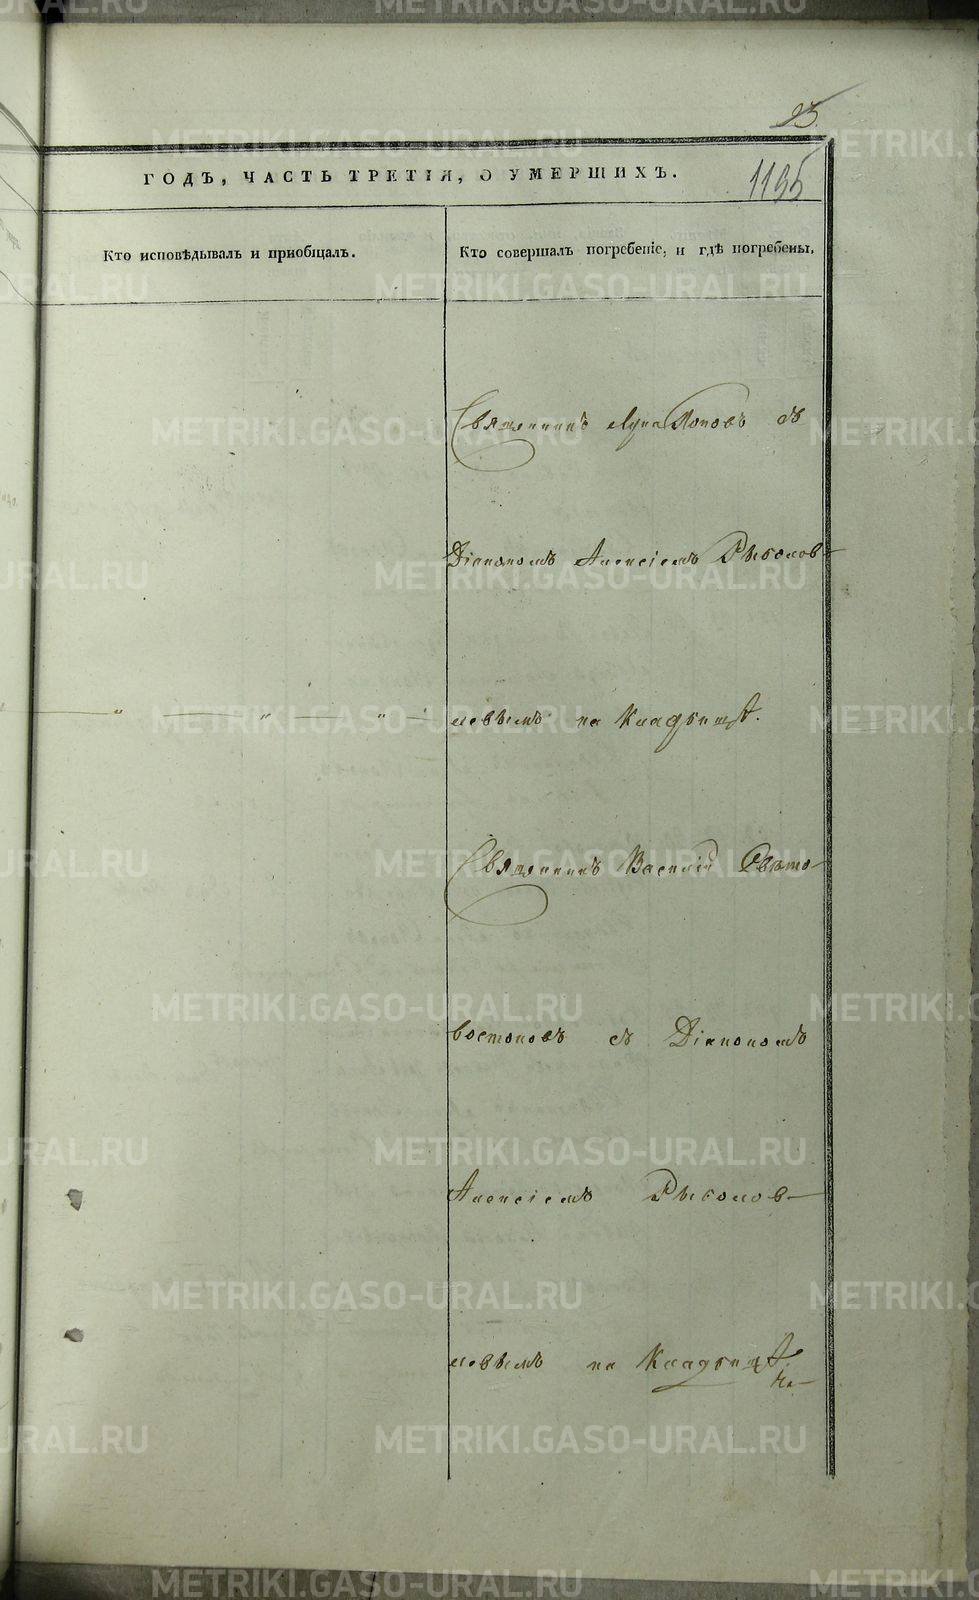 23.
ГОДЪ, ЧАСТЬ ТРЕТІЯ, О УМЕРШИХЪ.
1195
Кто исповѣдывалъ и пріобщалъ.
Кто совершалъ погребеніе, и гдѣ погребены.
Священникъ Лука Поповъ съ
Діакономъ Алексіемъ
на Кладбищѣ.
Священникъ Василій Свѣто-
востоковъ съ Діакономъ
Алексіемъ
на Кладбищѣ
METRIKI.GASO-URAL.RU